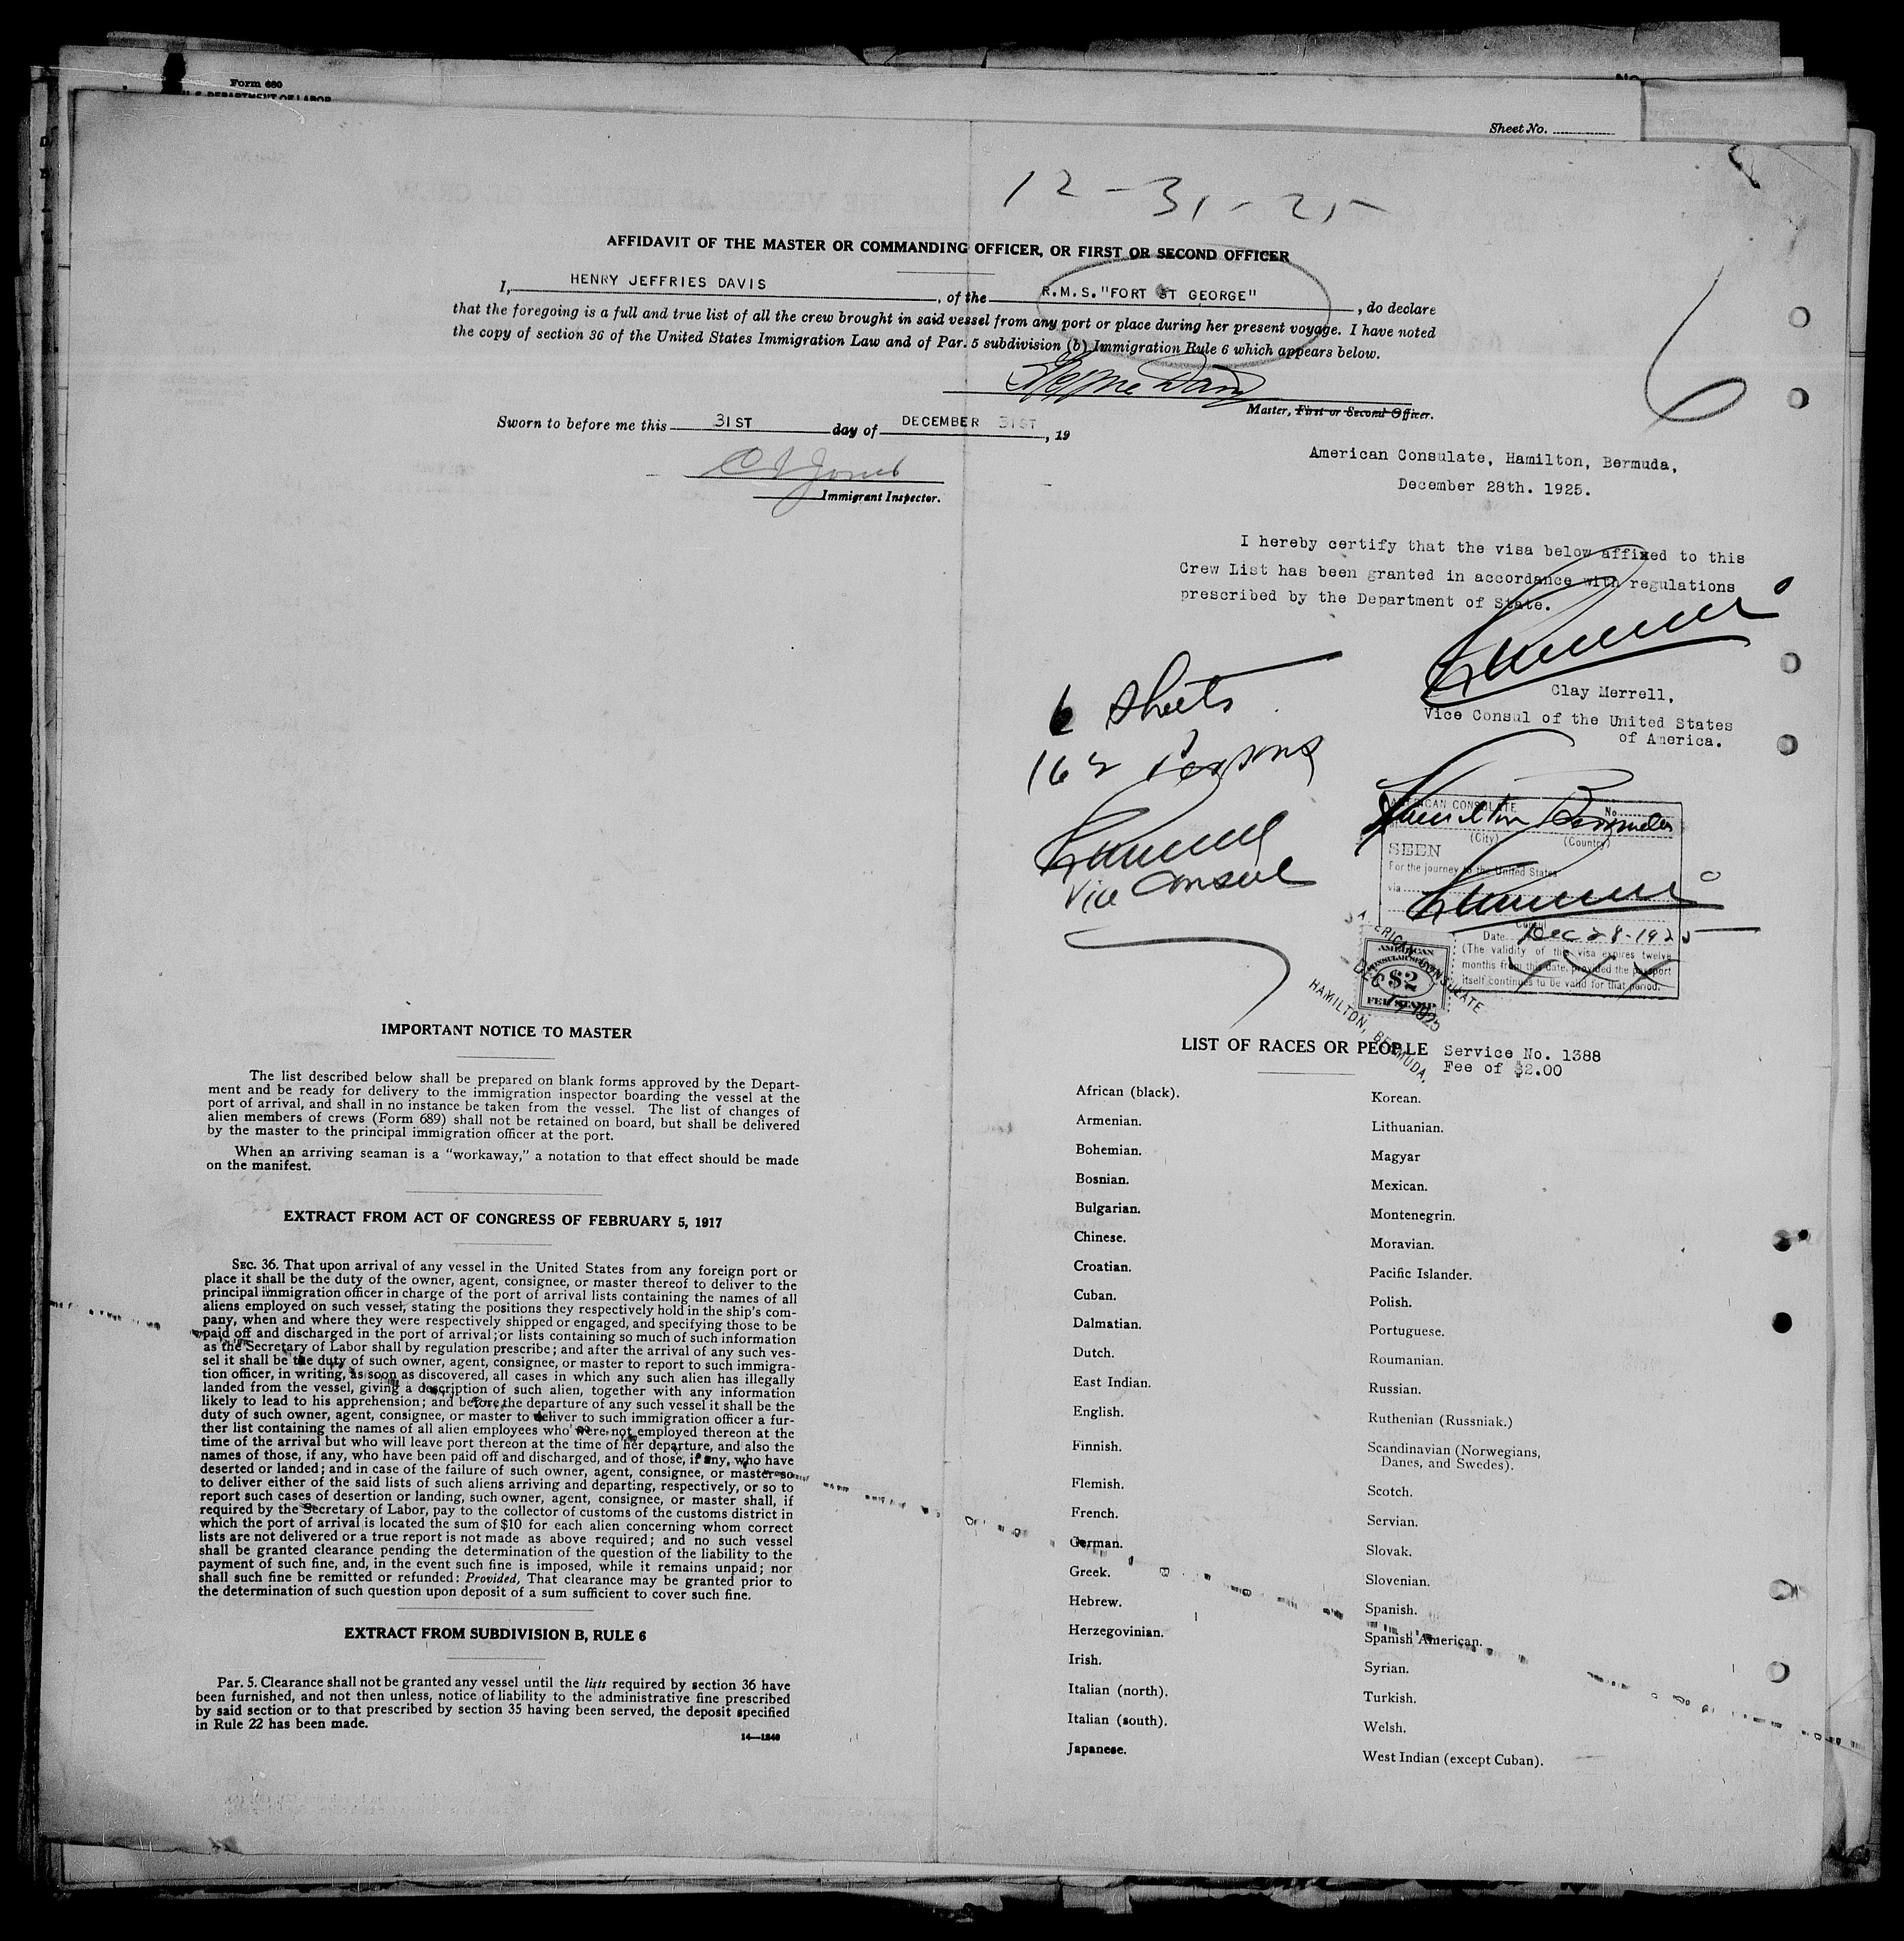 Form 680
U. S. DEPARTMENT OF LABOR
No.
Sheet No.
12-31-25
6
AFFIDAVIT OF THE MASTER OR COMMANDING OFFICER, OR FIRST OR SECOND OFFICER
I, HENRY JEFFRIES DAVIS, of the R.M.S. "FORT ST GEORGE", do declare
that the foregoing is a full and true list of all the crew brought in said vessel from any port or place during her present voyage. I have noted
the copy of section 36 of the United States Immigration Law and of Par. 5 subdivision (b) Immigration Rule 6 which appears below.
Master, First or Second Officer.
Sworn to before me this 31ST day of DECEMBER 31ST, 19
Immigrant Inspector.
American Consulate, Hamilton, Bermuda,
December 28th. 1925.
I hereby certify that the visa below affixed to this
Crew List has been granted in accordance with regulations
prescribed by the Department of State.
Clay Merrell,
Vice Consul of the United States
of America.
6 Sheets
162 Persons
Vice Consul
AMERICAN CONSULATE No.
Hamilton Bermuda
(City) (Country)
SEEN
For the journey to the United States
via
Consul
Date Dec 28-1925
(The validity of this visa expires twelve
months from this date, provided the passport
itself continues to be valid for that period.
AMERICAN
CONSULAR SERVICE
$2
FEE STAMP
AMERICAN CONSULATE
DEC 1925
HAMILTON, BERMUDA.
Service No. 1388
Fee of $2.00
IMPORTANT NOTICE TO MASTER
The list described below shall be prepared on blank forms approved by the Depart-
ment and be ready for delivery to the immigration inspector boarding the vessel at the
port of arrival, and shall in no instance be taken from the vessel. The list of changes of
alien members of crews (Form 689) shall not be retained on board, but shall be delivered
by the master to the principal immigration officer at the port.
When an arriving seaman is a "workaway," a notation to that effect should be made
on the manifest.
EXTRACT FROM ACT OF CONGRESS OF FEBRUARY 5, 1917
SEC. 36. That upon arrival of any vessel in the United States from any foreign port or
place it shall be the duty of the owner, agent, consignee, or master thereof to deliver to the
principal immigration officer in charge of the port of arrival lists containing the names of all
aliens employed on such vessel, stating the positions they respectively hold in the ship's com-
pany, when and where they were respectively shipped or engaged, and specifying those to be
paid off and discharged in the port of arrival; or lists containing so much of such information
as the Secretary of Labor shall by regulation prescribe; and after the arrival of any such ves-
sel it shall be the duty of such owner, agent, consignee, or master to report to such immigra-
tion officer, in writing, as soon as discovered, all cases in which any such alien has illegally
landed from the vessel, giving a description of such alien, together with any information
likely to lead to his apprehension; and before the departure of any such vessel it shall be the
duty of such owner, agent, consignee, or master to deliver to such immigration officer a fur-
ther list containing the names of all alien employees who were not employed thereon at the
time of the arrival but who will leave port thereon at the time of her departure, and also the
names of those, if any, who have been paid off and discharged, and of those, if any, who have
deserted or landed; and in case of the failure of such owner, agent, consignee, or master so
to deliver either of the said lists of such aliens arriving and departing, respectively, or so to
report such cases of desertion or landing, such owner, agent, consignee, or master shall, if
required by the Secretary of Labor, pay to the collector of customs of the customs district in
which the port of arrival is located the sum of $10 for each alien concerning whom correct
lists are not delivered or a true report is not made as above required; and no such vessel
shall be granted clearance pending the determination of the question of the liability to the
payment of such fine, and, in the event such fine is imposed, while it remains unpaid; nor
shall such fine be remitted or refunded: Provided, That clearance may be granted prior to
the determination of such question upon deposit of a sum sufficient to cover such fine.
EXTRACT FROM SUBDIVISION B, RULE 6
Par. 5. Clearance shall not be granted any vessel until the lists required by section 36 have
been furnished, and not then unless, notice of liability to the administrative fine prescribed
by said section or to that prescribed by section 35 having been served, the deposit specified
in Rule 22 has been made.
14—1240
LIST OF RACES OR PEOPLE
African (black).
Armenian.
Bohemian.
Bosnian.
Bulgarian.
Chinese.
Croatian.
Cuban.
Dalmatian.
Dutch.
East Indian.
English.
Finnish.
Flemish.
French.
German.
Greek.
Hebrew.
Herzegovinian.
Irish.
Italian (north).
Italian (south).
Japanese.
Korean.
Lithuanian.
Magyar
Mexican.
Montenegrin.
Moravian.
Pacific Islander.
Polish.
Portuguese.
Roumanian.
Russian.
Ruthenian (Russniak.)
Scandinavian (Norwegians,
Danes, and Swedes).
Scotch.
Servian.
Slovak.
Slovenian.
Spanish.
Spanish American.
Syrian.
Turkish.
Welsh.
West Indian (except Cuban).